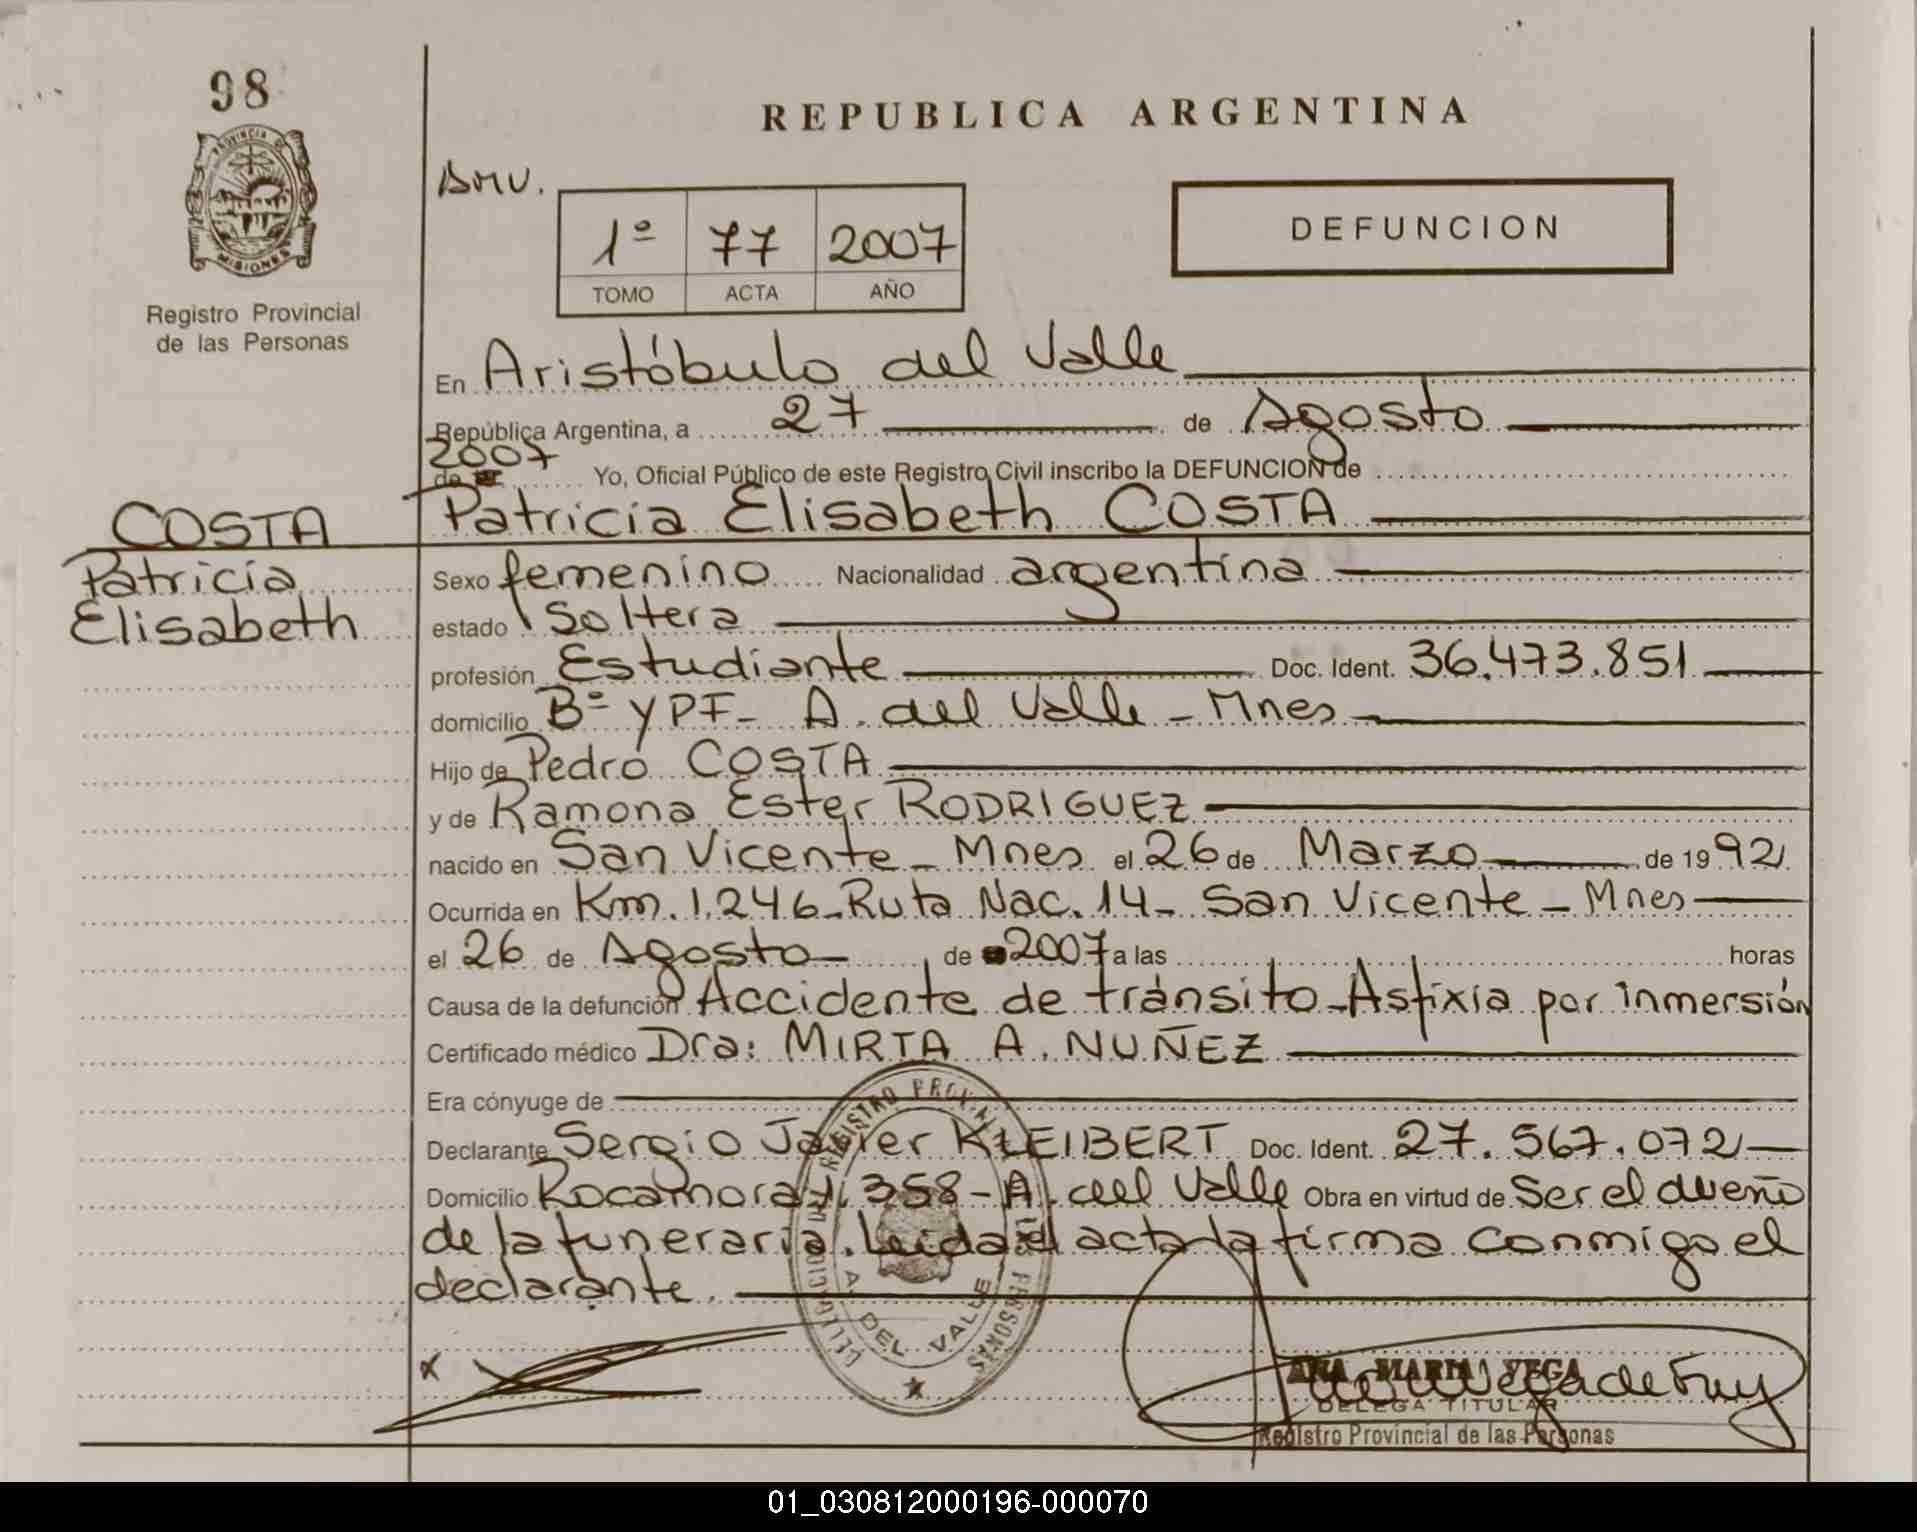 98
PROVINCIA DE
MISIONES
Registro Provincial
de las Personas
REPUBLICA ARGENTINA
AMV.
1º 77 2007
TOMO ACTA AÑO
DEFUNCION
En Aristóbulo del Valle
República Argentina, a 27 de Agosto
2007
de Yo, Oficial Público de este Registro Civil inscribo la DEFUNCION de
Patricia Elisabeth COSTA
COSTA
Patricia
Elisabeth
Sexo femenino Nacionalidad argentina
estado Soltera
profesión Estudiante Doc. Ident. 36.473.851
domicilio Bº YPF - A. del Valle - Mnes
Hijo de Pedro COSTA
y de Ramona Ester RODRIGUEZ
nacido en San Vicente - Mnes el 26 de Marzo de 1992
Ocurrida en Km. 1.246 - Ruta Nac. 14 - San Vicente - Mnes
el 26 de Agosto de 2007 a las horas
Causa de la defunción Accidente de tránsito - Asfixia por inmersión
Certificado médico Dra: MIRTA A. NUÑEZ
Era cónyuge de
Declarante Sergio Javier KLEIBERT Doc. Ident. 27.567.072
Domicilio Rocamora 358 - A. del Valle Obra en virtud de Ser el dueño
de la funeraria. Leida el acta la firma conmigo el
declarante.
DELEGACION DEL REGISTRO PROVINCIAL DE LAS PERSONAS
A. DEL VALLE
x
ANA MARIA VEGA
DELEGA TITULAR
Registro Provincial de las Personas
01_030812000196-000070